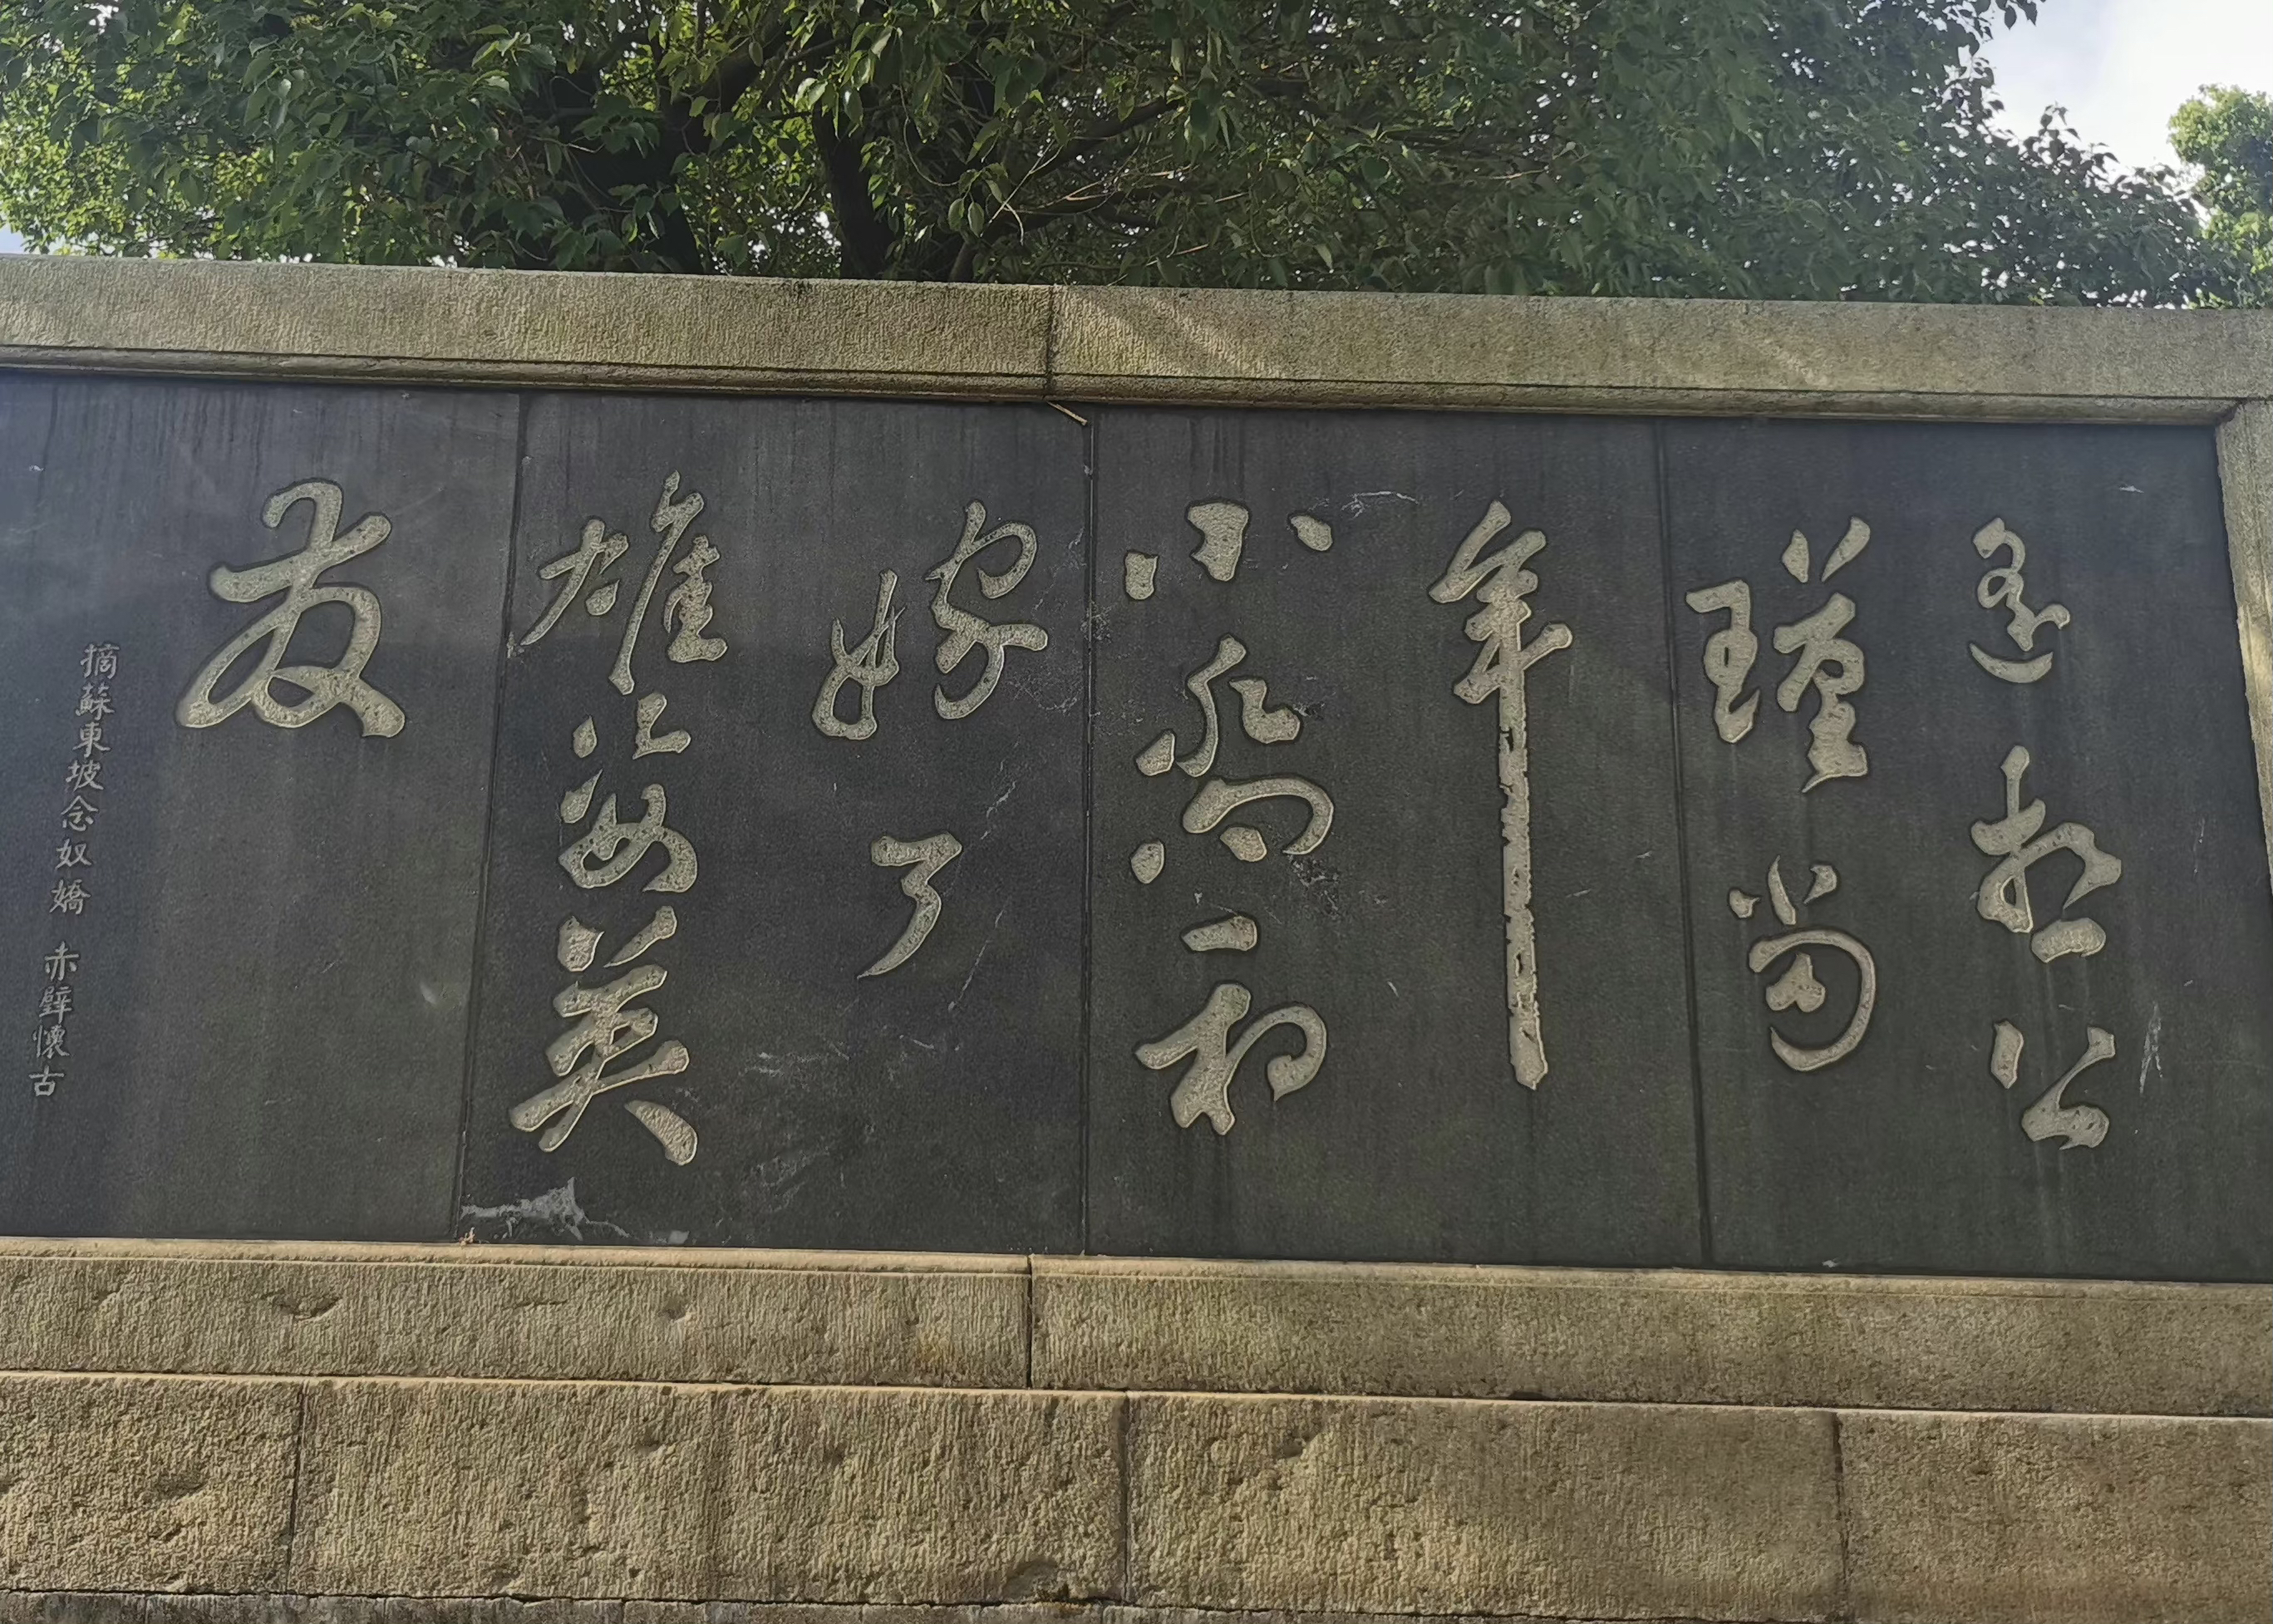 遙想公
瑾當
年
小喬初
嫁了
雄姿英
發
摘蘇東坡念奴嬌 赤壁懷古